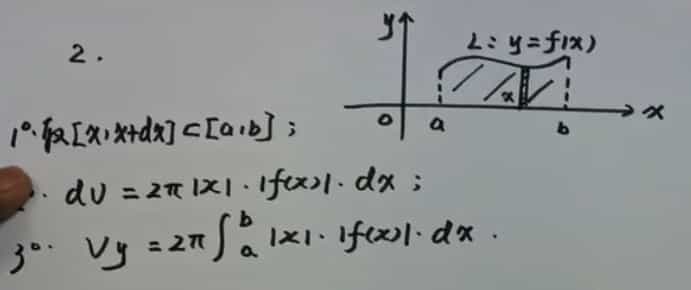 2.
y
L: y=f(x)
x
o a b x
1°. 取[x,x+dx]⊂[a,b];
. dv = 2π|x|·|f(x)|·dx;
3°. Vy = 2π∫ₐᵇ|x|·|f(x)|·dx.